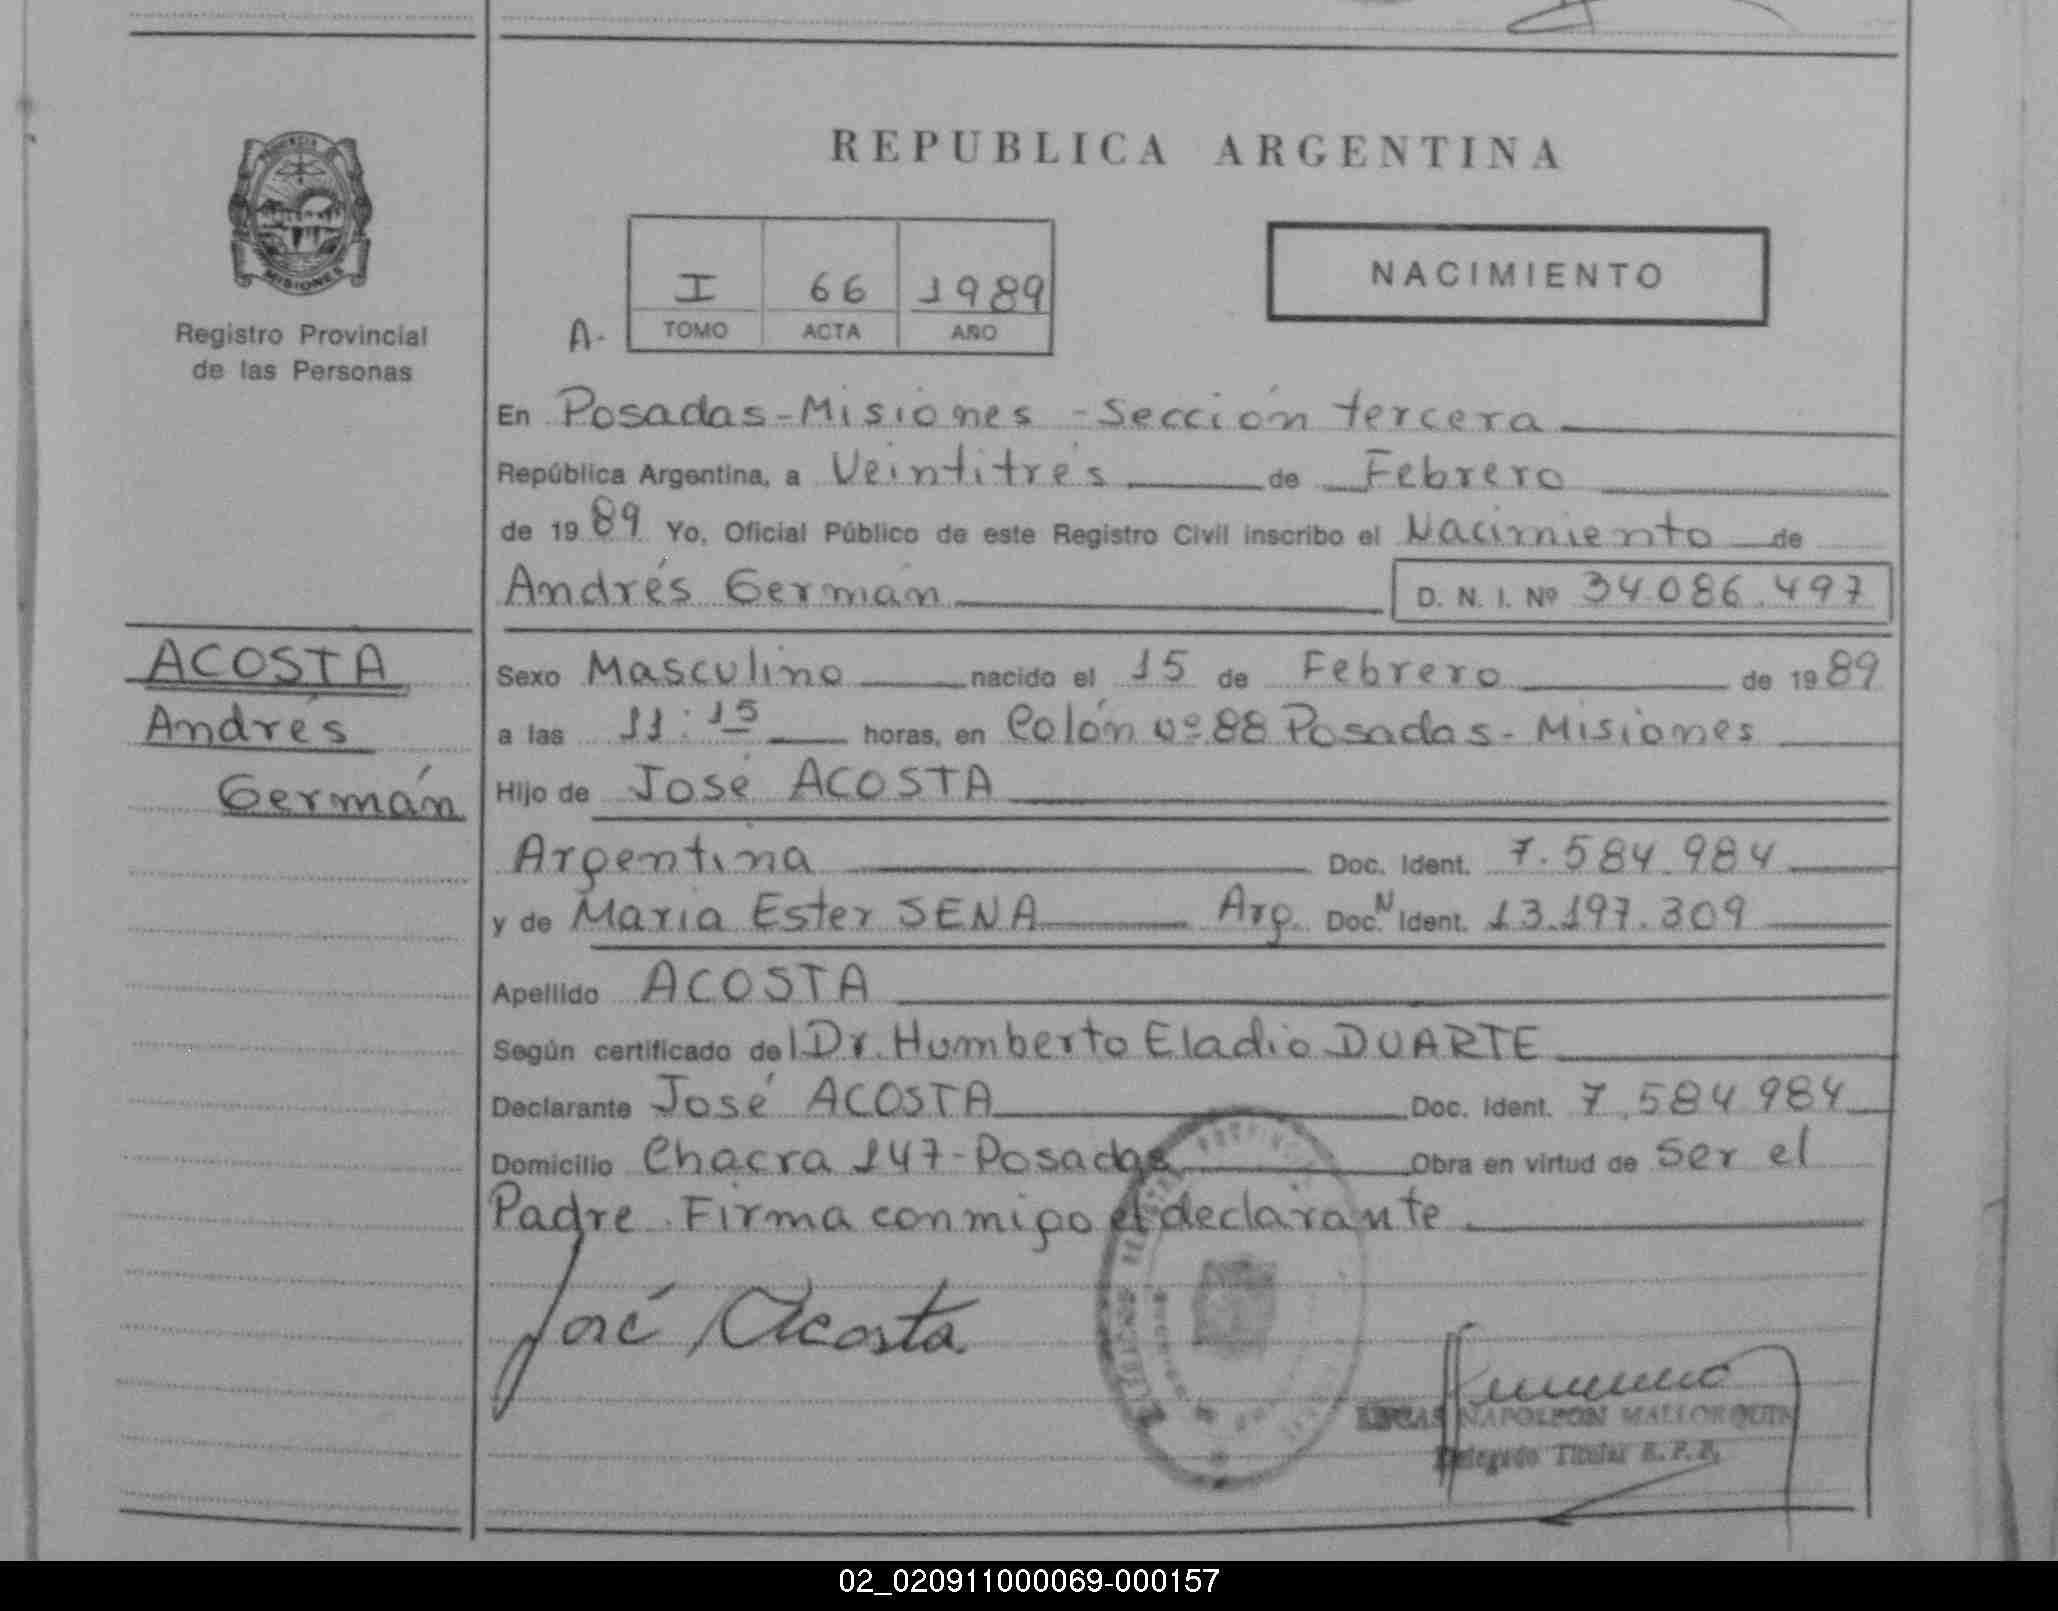 REPUBLICA ARGENTINA
PROVINCIA DE
MISIONES
Registro Provincial
de las Personas
NACIMIENTO
I 66 1989
A- TOMO ACTA AÑO
En Posadas-Misiones - Sección tercera
República Argentina, a Veintitrés de Febrero
de 1989 Yo, Oficial Público de este Registro Civil inscribo el Nacimiento de
Andrés Germán D. N. I. Nº 34.086.497
ACOSTA
Andrés
Germán
Sexo Masculino nacido el 15 de Febrero de 1989
a las 11:15 horas, en Colón nº 88 Posadas- Misiones
Hijo de José ACOSTA
Argentina Doc. Ident. 7.584.984
y de Maria Ester SENA Arg. Doc. N Ident. 13.197.309
Apellido ACOSTA
Según certificado del Dr. Humberto Eladio DUARTE
Declarante José ACOSTA Doc. Ident. 7.584 984
Domicilio Chacra 147-Posadas Obra en virtud de ser el
Padre. Firma conmigo el declarante
José Acosta
NAPOLEON MALLORQUIN
Delegado Titular R.P.P.
02_020911000069-000157